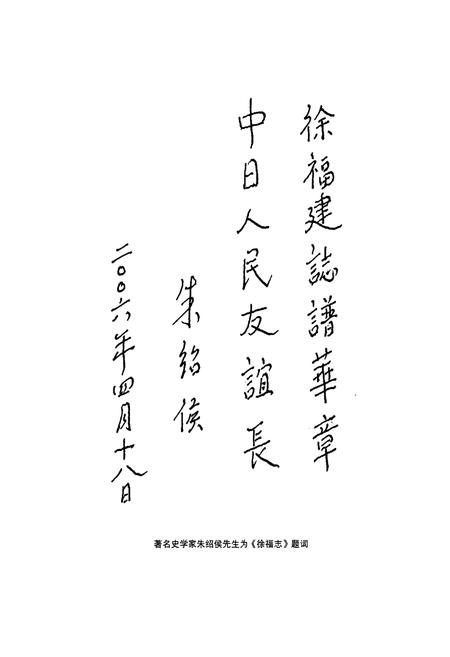 徐福建誌譜華章
中日人民友誼長
朱绍侯
二〇〇六年四月十八日
著名史学家朱绍侯先生为《徐福志》题词